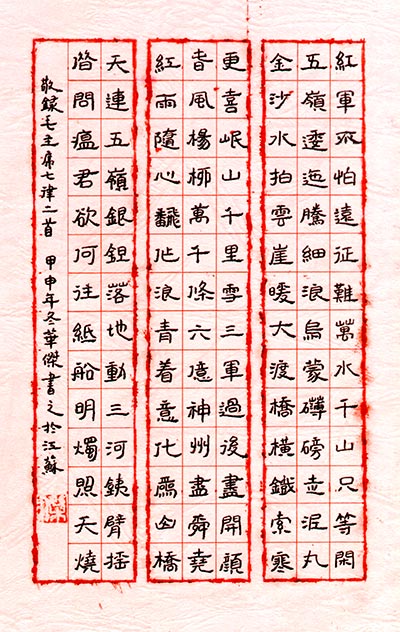 紅軍不怕遠征難萬水千山只等閒
五嶺逶迤騰細浪烏蒙礴磅走泥丸
金沙水拍雲崖暖大渡橋橫鐵索寒
更喜岷山千里雪三軍過後盡開顏
春風楊柳萬千條六億神州盡舜堯
紅雨隨心飜作浪青着意化為山橋
天連五嶺銀鋤落地動三河銕臂搖
借問瘟君欲何往紙船明燭照天燒
敬錄毛主席七律二首 甲申年冬華傑書之於江蘇